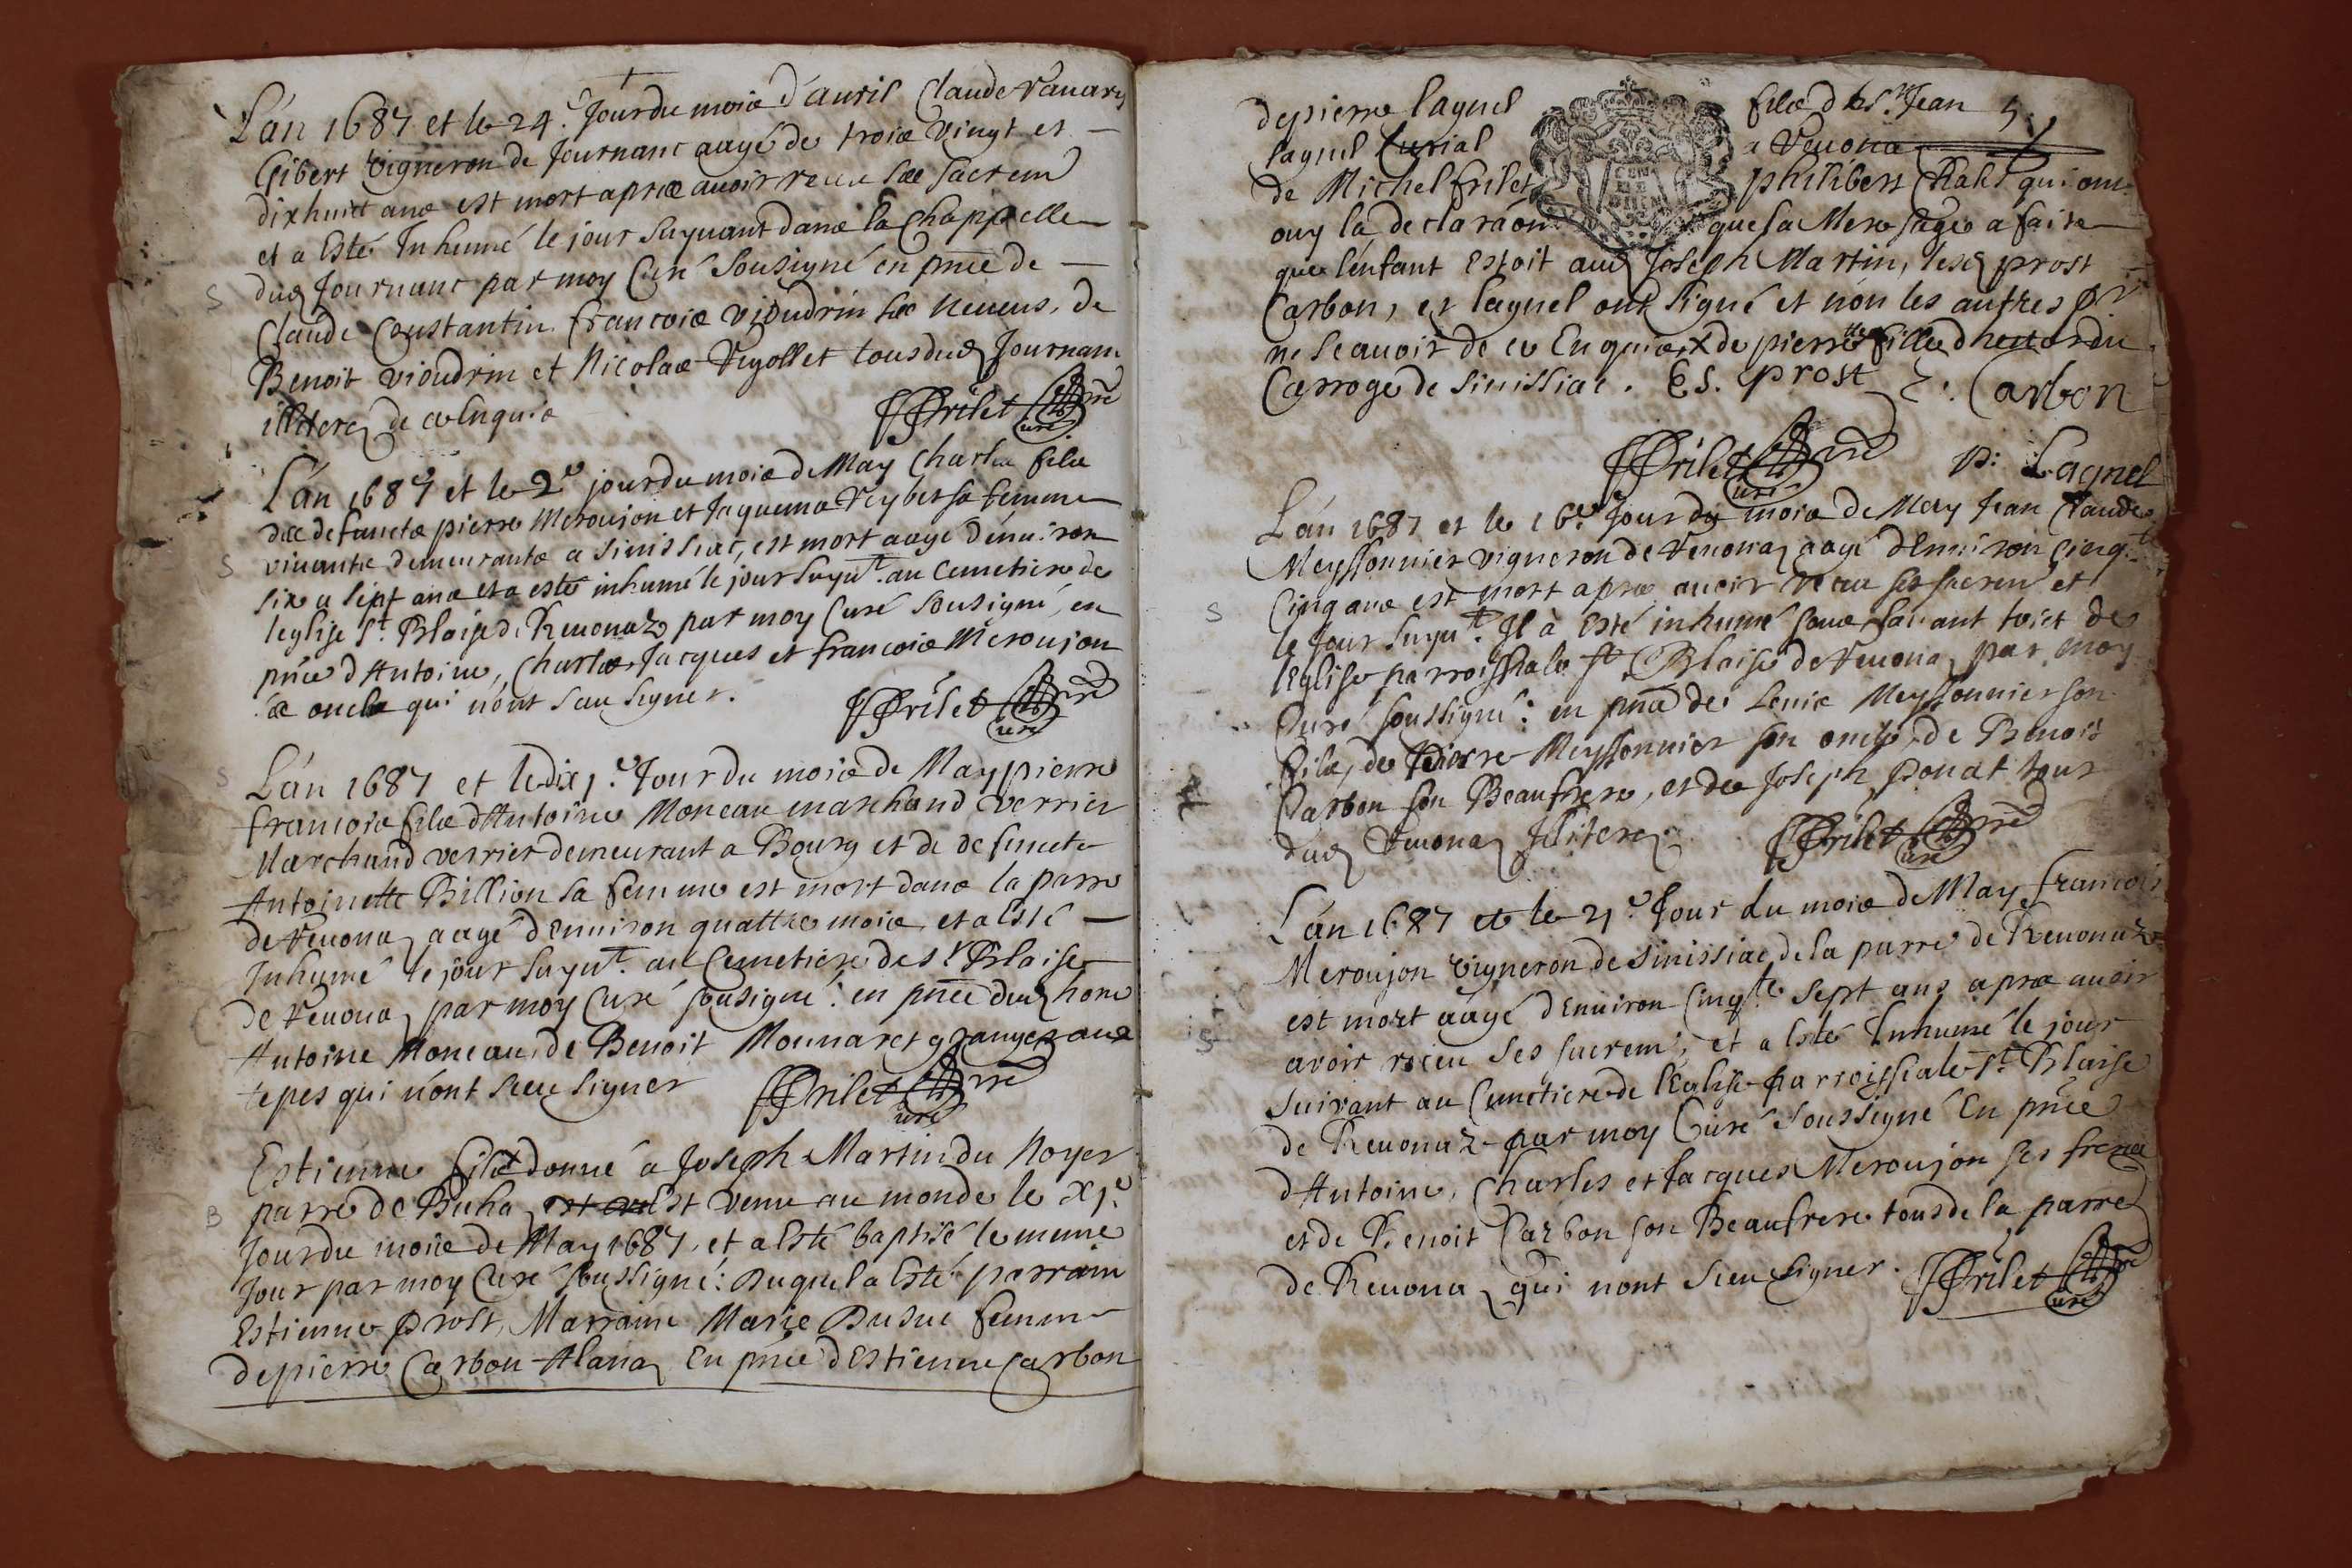 L'an 1687 et le 24e Jour du mois d'auril Claude Vauarz
Gibert vigneron de Journanc aagé de trois vingt et
dixhuict ans est mort apres auoir receu ses sacrem
et a Esté Inhumé le jour suyuant dans la Chappelle
dud Journanc par moy Curé Sousigné en pnce de
Claude Constantin françois vioudrin ses neueus, de
Benoit vioudrin et Nicolas Vegollet tous dud Journanc
illiterez de ce Enquis
JFrilet ptre
Curé
L'an 1687 et le 2e jour du mois de May Charles fils
des defuncts pierre Meroujon et Jaquema Veyber sa femme
viuants demeurants a Sinissiac, est mort aagé d'enuiron
six a sept ans et a esté inhumé le jour suyut au Cemetiere de
leglise St Blaise de Reuonaz par moy Curé Sousigné, en
pnce d'Antoine, Charles Jacques et francois Meroujon
ses oncles qui n'ont sceu signer.
JFrilet ptre
Curé
L'an 1687 et le dix 1e Jour du mois de May pierre
francois fils d'Antoine Moneau marchand verrier
Marchand verrier demeurant a Bourg et de defuncte
Antoinette Billion sa femme est mort dans la parre
de Reuona aagé d'Enuiron quattre mois et a Esté
Inhumé le jour suyut au Cemetiere de St Blaise
de Reuona par moy Curé sousigné: en pnce dud hon
Antoine Moneau, de Benoit Mounaret granger aux
tepes qui n'ont sceu signer
JFrilet ptre
Curé
Estienne fils donné a Joseph Martin du Noyer
parre de Buha est venu au monde le XIe
Jour du mois de May 1687, et a Esté baptisé le mesme
Jour par moy Curé soussigné: Duquel a Esté parrain
Estienne prost, Marraine Marie Dusuc femme
de pierre Carbon Alana En pnce d'Estienne Carbon
de pierre laguel fils de Sr Jean 5
laguel Curial a Reuona
de Michel frilet philibert Chalet qui ont
ouy la declaraon que la Mere sage a faite
que l'enfant Estoit aud Joseph Martin, lesd prost
Carbon, et laguel ont signé et non les autres pr
ne scauoir de ce Enquis, X de pierrette fille d'
Carroge de Sinissiac. Es. prost E: Carbon
JFrilet ptre
Curé
p: Lagnel
L'an 1687 et le 16e Jour du mois de May Jean Claude
Meyssonnier vigneron de Reuona aagé d'Enuiron Cinqte
Cinq ans est mort apres auoir receu ses sacrem et
le Jour suyut Il à Esté inhumé sous lauant toict de
leglise parroissiale St Blaise de Reuona par moy
Curé soussigné: en pnce de Louis Meyssonnier son
fils, de pierre Meyssonnier son oncle, de Benoit
Carbon son Beaufrere, et de Joseph Donat tous
dud Reuona Illiterez
JFrilet ptre
Curé
L'an 1687 et le 21e Jour du mois de May francois
Meroujon vigneron de Sinissiac de la parre de Reuonaz
est mort aagé d'Enuiron Cinqte sept ans apres auoir
avoir receu ses sacrem, et a Esté Inhumé le jour
suivant au Cemetiere de l'Eglise parroissiale St Blaise
de Reuonaz par moy Curé Soussigné En pnce
d'Antoine, Charles et Jacques Meroujon ses freres
et de Benoit Carbon son Beaufrere tous de la parre
de Reuona qui nont sceu signer.
JFrilet ptre
Curé